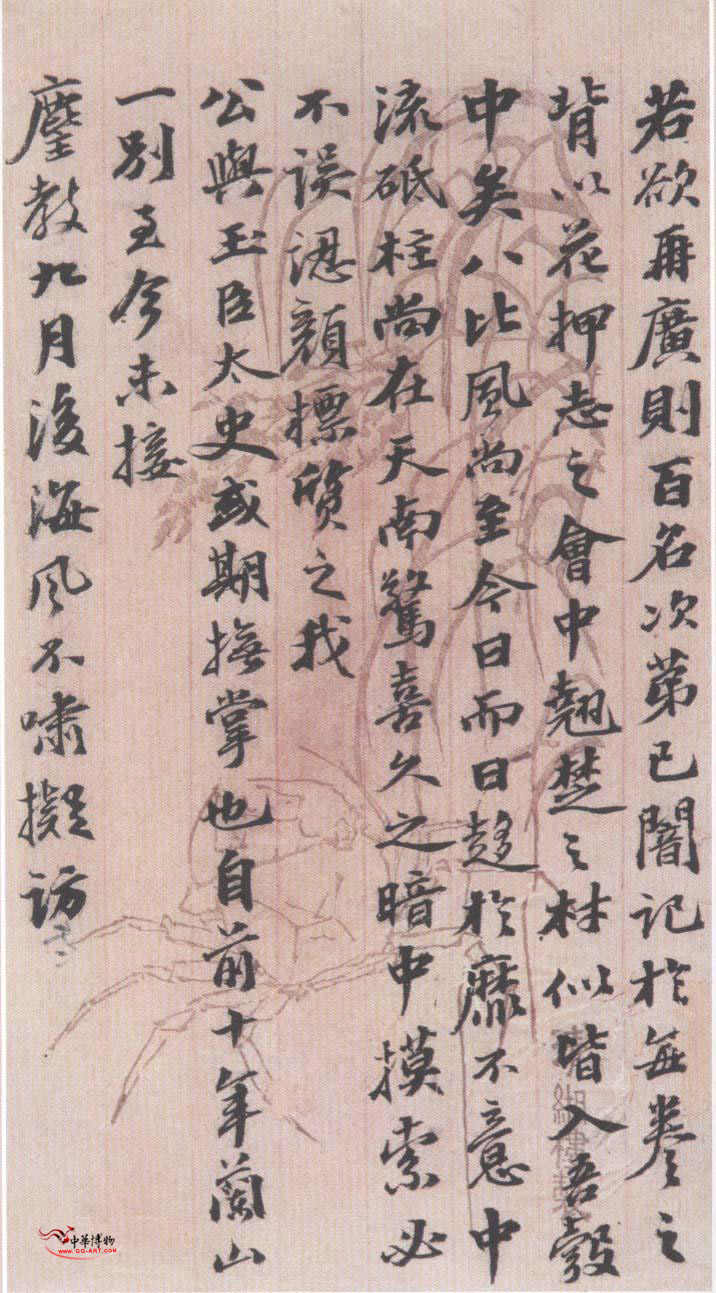 若欲再廣則百名次第已闇記於每卷之
背以花押志之會中翹楚之材似皆入吾彀
中矣八比風尚至今日而日趍於靡不意中
流砥柱尚在天南驚喜久之暗中摸索必
不誤認顏標質之我
公與玉臣太史或期撫掌也自前十年蘭山
一別至今未接
麈教九月後海風不嘯擬訪
中華博物
www.gg-art.com